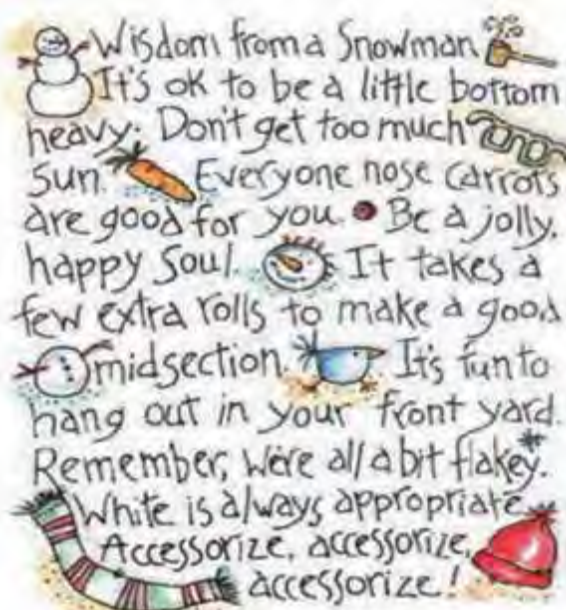 Wisdom from a Snowman
It's ok to be a little bottom
heavy. Don't get too much
Sun. Everyone nose carrots
are good for you. Be a jolly,
happy Soul. It takes a
few extra rolls to make a good
midsection. It's fun to
hang out in your front yard.
Remember, we're all a bit flakey.
White is always appropriate.
Accessorize, accessorize,
accessorize!